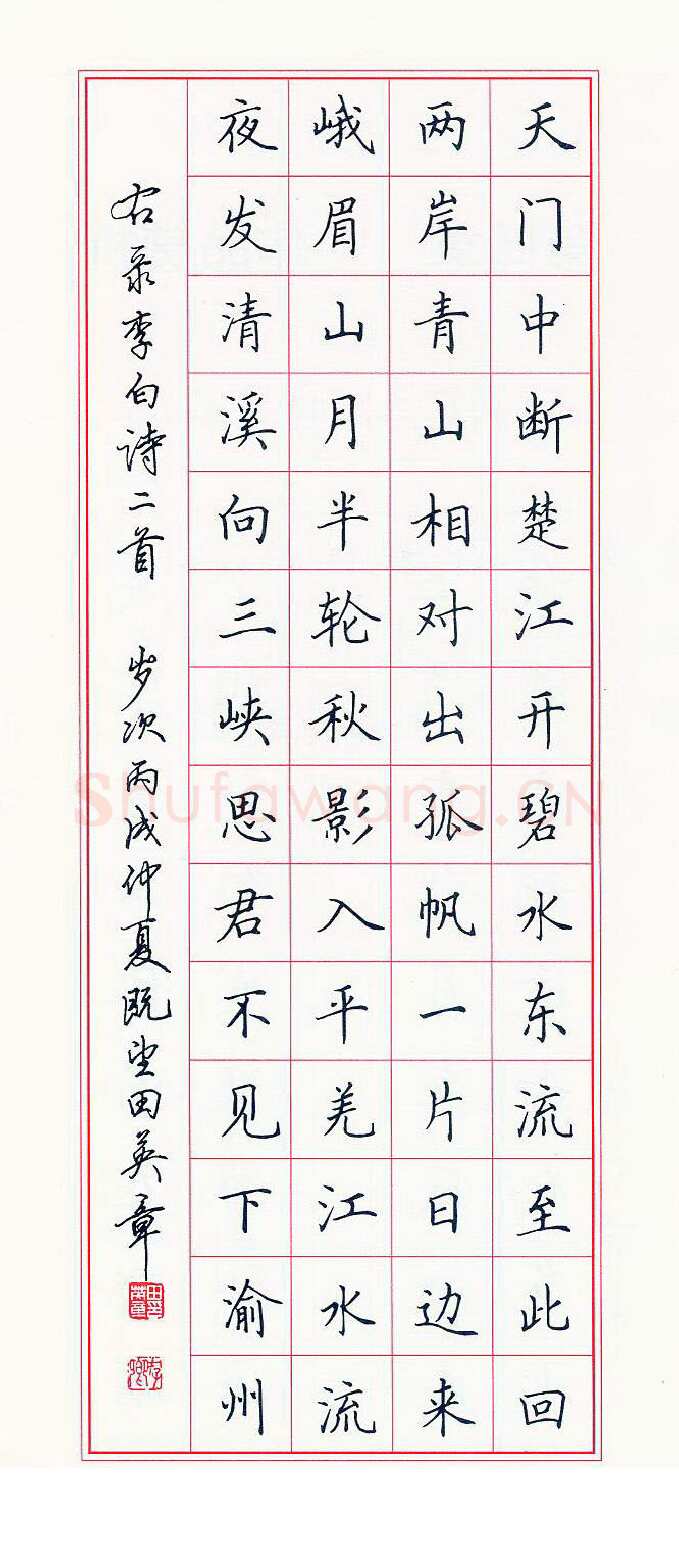 天门中断楚江开碧水东流至此回
两岸青山相对出孤帆一片日边来
峨眉山月半轮秋影入平羌江水流
夜发清溪向三峡思君不见下渝州
右录李白诗二首 岁次丙戌仲夏既望田英章
Shufawang.CN